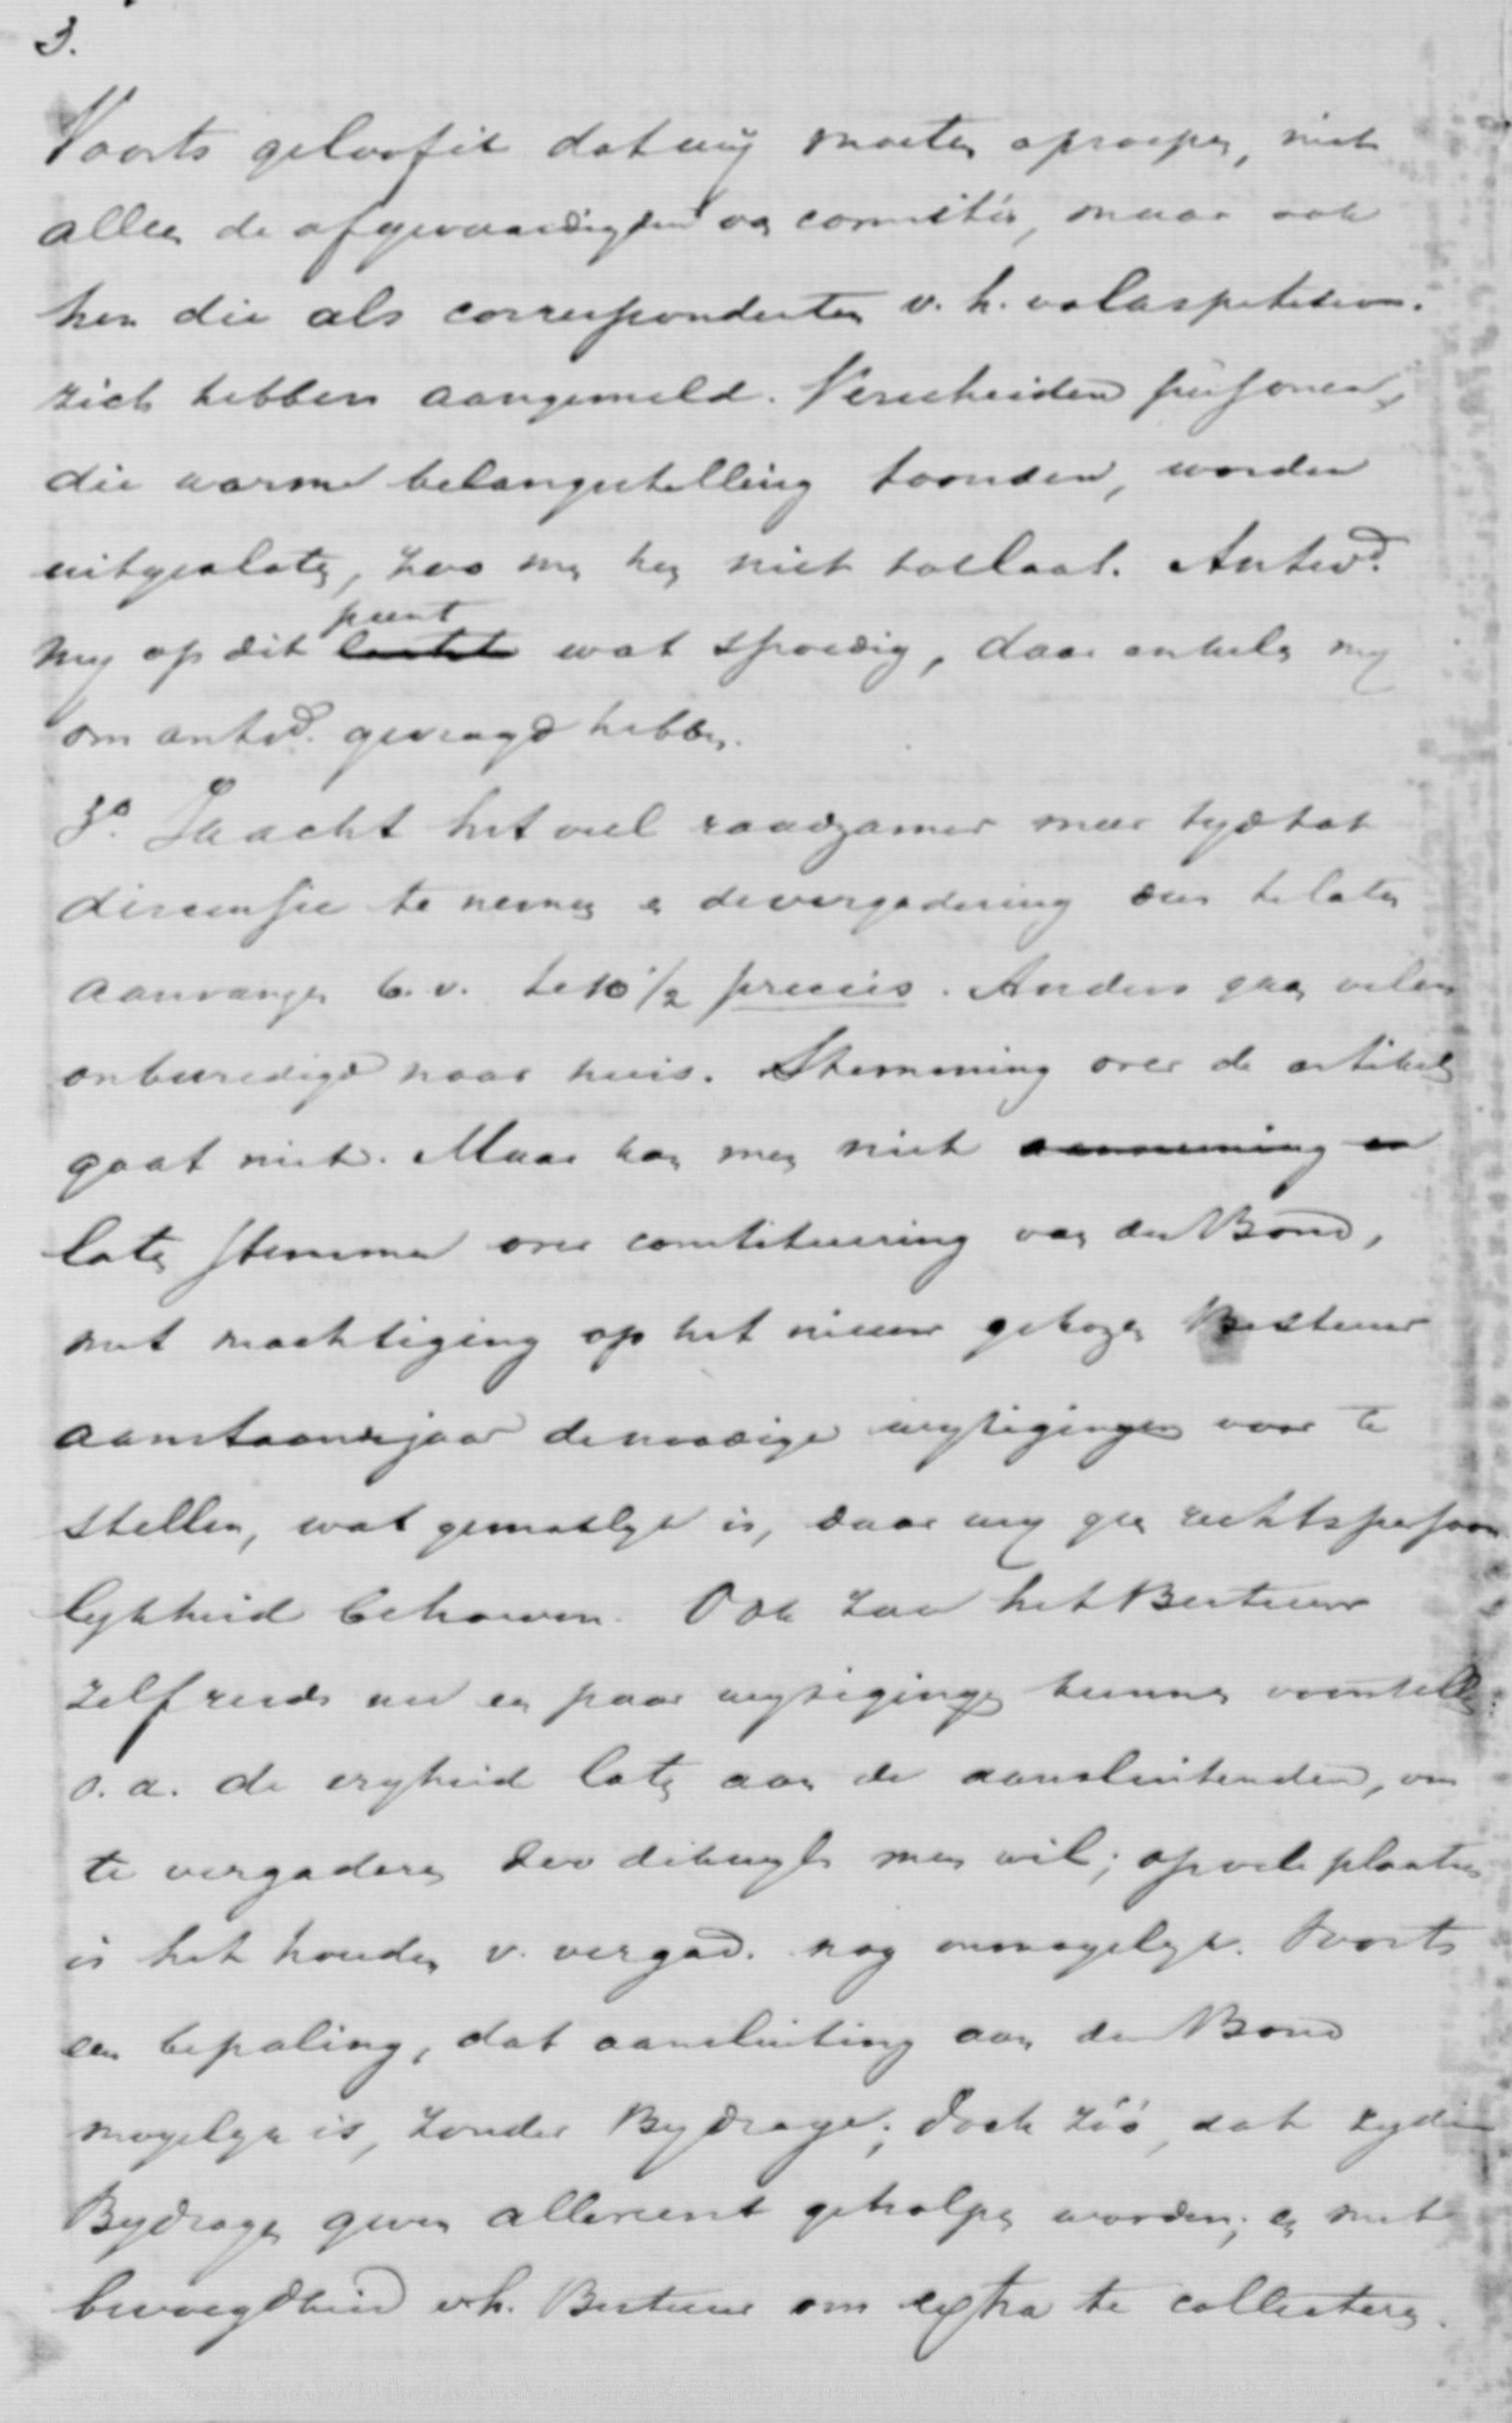 3.
Voorts geloof ik dat wij moeten oproepen, niet
alleen de afgevaardigden van comités, maar ook
hen die als correspondenten v. h. volkspetition.
zich hebben aangemeld. Verscheiden personen,
die warme belangstelling toonden, worden
uitgesloten, zoo men hen niet toelaat. Antwd.
my op dit punt wat spoedig, daar enkelen my
om antwd. gevraagd hebben.
3o. Ik acht het veel raadzamer meer tyd tot
discussie te nemen en de vergadering dus te laten
aanvangen b.v. te 10 1/2 precies. Anders gaan velen
onbevredigd naar huis. Stemming over de artikels
gaat niet. Maar kan men niet aanneming en
laten stemmen over constitueering van den Bond,
met machtiging op het nieuw gekozen Bestuur
aanstaand jaar de noodige wyzigingen voor te
stellen, wat gemaklyk is, daar wy geen rechtspersoon
lykheid behoeven. Ook zou het Bestuur
zelf reeds nu een paar wyzigingen kunnen voorstellen.
o. a. de vryheid laten aan de aansluitenden, om
te vergaderen zoo dikwyls men wil; op vele plaatsen
is het houden v. vergad. nog onmogelyk. Voorts
een bepaling, dat aansluiting aan den Bond
mogelyk is, zonder Bydrage; doch zóó, dat zy die
Bydragen geven allereerst geholpen worden; en met
bevoegdheid v.h. Bestuur om extra te collecteren.